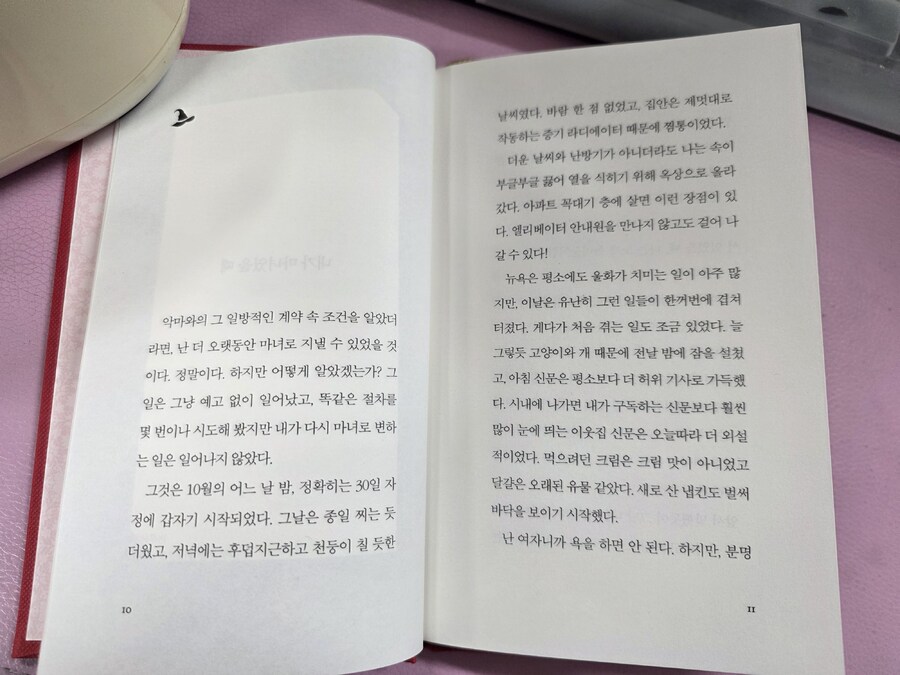 악마와의 그 일방적인 계약 속 조건을 알았더
라면, 난 더 오랫동안 마녀로 지낼 수 있었을 것
이다. 정말이다. 하지만 어떻게 알았겠는가? 그
일은 그냥 예고 없이 일어났고, 똑같은 절차를
몇 번이나 시도해 봤지만 내가 다시 마녀로 변하
는 일은 일어나지 않았다.
그것은 10월의 어느 날 밤, 정확히는 30일 자
정에 갑자기 시작되었다. 그날은 종일 찌는 듯
더웠고, 저녁에는 후덥지근하고 천둥이 칠 듯한
10
날씨였다. 바람 한 점 없었고, 집안은 제멋대로
작동하는 증기 라디에이터 때문에 찜통이었다.
더운 날씨와 난방기가 아니더라도 나는 속이
부글부글 끓어 열을 식히기 위해 옥상으로 올라
갔다. 아파트 꼭대기 층에 살면 이런 장점이 있
다. 엘리베이터 안내원을 만나지 않고도 걸어 나
갈 수 있다!
뉴욕은 평소에도 울화가 치미는 일이 아주 많
지만, 이날은 유난히 그런 일들이 한꺼번에 겹쳐
터졌다. 게다가 처음 겪는 일도 조금 있었다. 늘
그렇듯 고양이와 개 때문에 전날 밤에 잠을 설쳤
고, 아침 신문은 평소보다 더 허위 기사로 가득했
다. 시내에 나가면 내가 구독하는 신문보다 훨씬
많이 눈에 띄는 이웃집 신문은 오늘따라 더 외설
적이었다. 먹으려던 크림은 크림 맛이 아니었고
달걀은 오래된 유물 같았다. 새로 산 냅킨도 벌써
바닥을 보이기 시작했다.
난 여자니까 욕을 하면 안 된다. 하지만, 분명
11